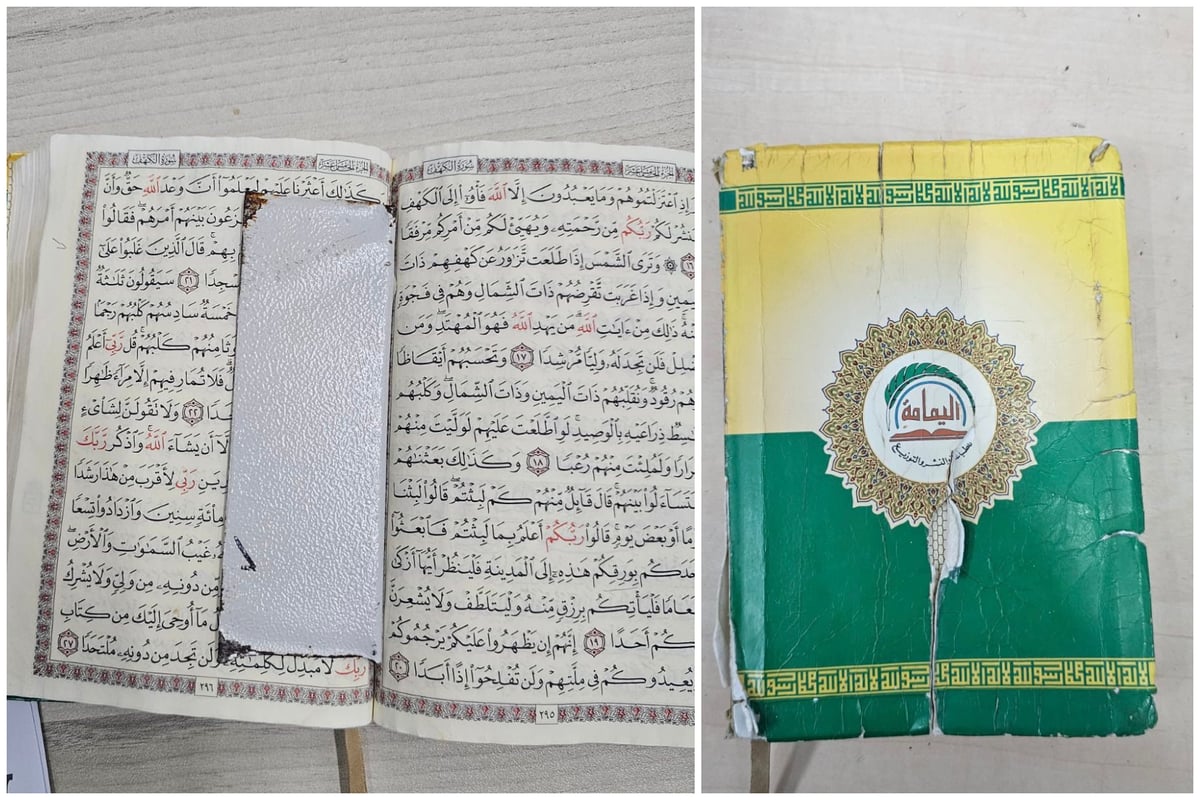 سُورَةُ الكَهْف
الجُزْءُ الخَامِسَ عَشَرَ
إِذِ ٱعْتَزَلْتُمُوهُمْ وَمَا يَعْبُدُونَ إِلَّا ٱللَّهَ فَأْوُۥٓا۟ إِلَى ٱلْكَهْفِ
لَكُمْ رَبُّكُم مِّن رَّحْمَتِهِۦ وَيُهَيِّئْ لَكُم مِّنْ أَمْرِكُم مِّرْفَقًا
١٦ ۞ وَتَرَى ٱلشَّمْسَ إِذَا طَلَعَت تَّزَٰوَرُ عَن كَهْفِهِمْ ذَاتَ
وَإِذَا غَرَبَت تَّقْرِضُهُمْ ذَاتَ ٱلشِّمَالِ وَهُمْ فِى فَجْوَةٍ
ذَٰلِكَ مِنْ ءَايَٰتِ ٱللَّهِ مَن يَهْدِ ٱللَّهُ فَهُوَ ٱلْمُهْتَدِ وَمَن
فَلَن تَجِدَ لَهُۥ وَلِيًّا مُّرْشِدًا ١٧ وَتَحْسَبُهُمْ أَيْقَاظًا
هُمْ رُقُودٌ وَنُقَلِّبُهُمْ ذَاتَ ٱلْيَمِينِ وَذَاتَ ٱلشِّمَالِ وَكَلْبُهُم
ذِرَاعَيْهِ بِٱلْوَصِيدِ لَوِ ٱطَّلَعْتَ عَلَيْهِمْ لَوَلَّيْتَ مِنْهُمْ
وَلَمُلِئْتَ مِنْهُمْ رُعْبًا ١٨ وَكَذَٰلِكَ بَعَثْنَٰهُمْ
بَيْنَهُمْ قَالَ قَآئِلٌ مِّنْهُمْ كَمْ لَبِثْتُمْ قَالُوا۟ لَبِثْنَا
أَوْ بَعْضَ يَوْمٍ قَالُوا۟ رَبُّكُمْ أَعْلَمُ بِمَا لَبِثْتُمْ فَٱبْعَثُوٓا۟
بِوَرِقِكُمْ هَٰذِهِۦٓ إِلَى ٱلْمَدِينَةِ فَلْيَنظُرْ أَيُّهَآ أَزْكَىٰ
فَلْيَأْتِكُم بِرِزْقٍ مِّنْهُ وَلْيَتَلَطَّفْ وَلَا يُشْعِرَنَّ
كُمْ أَحَدًا ١٩ إِنَّهُمْ إِن يَظْهَرُوا۟ عَلَيْكُمْ يَرْجُمُوكُمْ
يُعِيدُوكُمْ فِى مِلَّتِهِمْ وَلَن تُفْلِحُوٓا۟ إِذًا أَبَدًا ٢٠
٢٩٥
الجُزْءُ الخَامِسَ عَشَرَ
سُورَةُ الكَهْف
كَذَٰلِكَ أَعْثَرْنَا عَلَيْهِمْ لِيَعْلَمُوٓا۟ أَنَّ وَعْدَ ٱللَّهِ حَقٌّ وَأَنَّ
بَيْنَهُمْ أَمْرَهُمْ فَقَالُوا۟
بِهِمْ قَالَ ٱلَّذِينَ غَلَبُوا۟ عَلَىٰٓ
٢١ سَيَقُولُونَ ثَلَٰثَةٌ
خَمْسَةٌ سَادِسُهُمْ كَلْبُهُمْ رَجْمًۢا
وَثَامِنُهُمْ كَلْبُهُمْ قُل رَّبِّىٓ أَعْلَمُ
فَلَا تُمَارِ فِيهِمْ إِلَّا مِرَآءً ظَٰهِرًا
٢٢ وَلَا تَقُولَنَّ لِشَا۟ىْءٍ
أَن يَشَآءَ ٱللَّهُ وَٱذْكُر رَّبَّكَ
رَبِّى لِأَقْرَبَ مِنْ هَٰذَا رَشَدًا
مِا۟ئَةٍ سِنِينَ وَٱزْدَادُوا۟ تِسْعًا
غَيْبُ ٱلسَّمَٰوَٰتِ وَٱلْأَرْضِ
مِّن دُونِهِۦ مِن وَلِىٍّ وَلَا يُشْرِكُ
مَآ أُوحِىَ إِلَيْكَ مِن كِتَابِ
رَبِّكَ لَا مُبَدِّلَ لِكَلِمَٰتِهِۦ وَلَن تَجِدَ مِن دُونِهِۦ مُلْتَحَدًا ٢٧
٢٩٦
اليمامة
للنشر والتوزيع